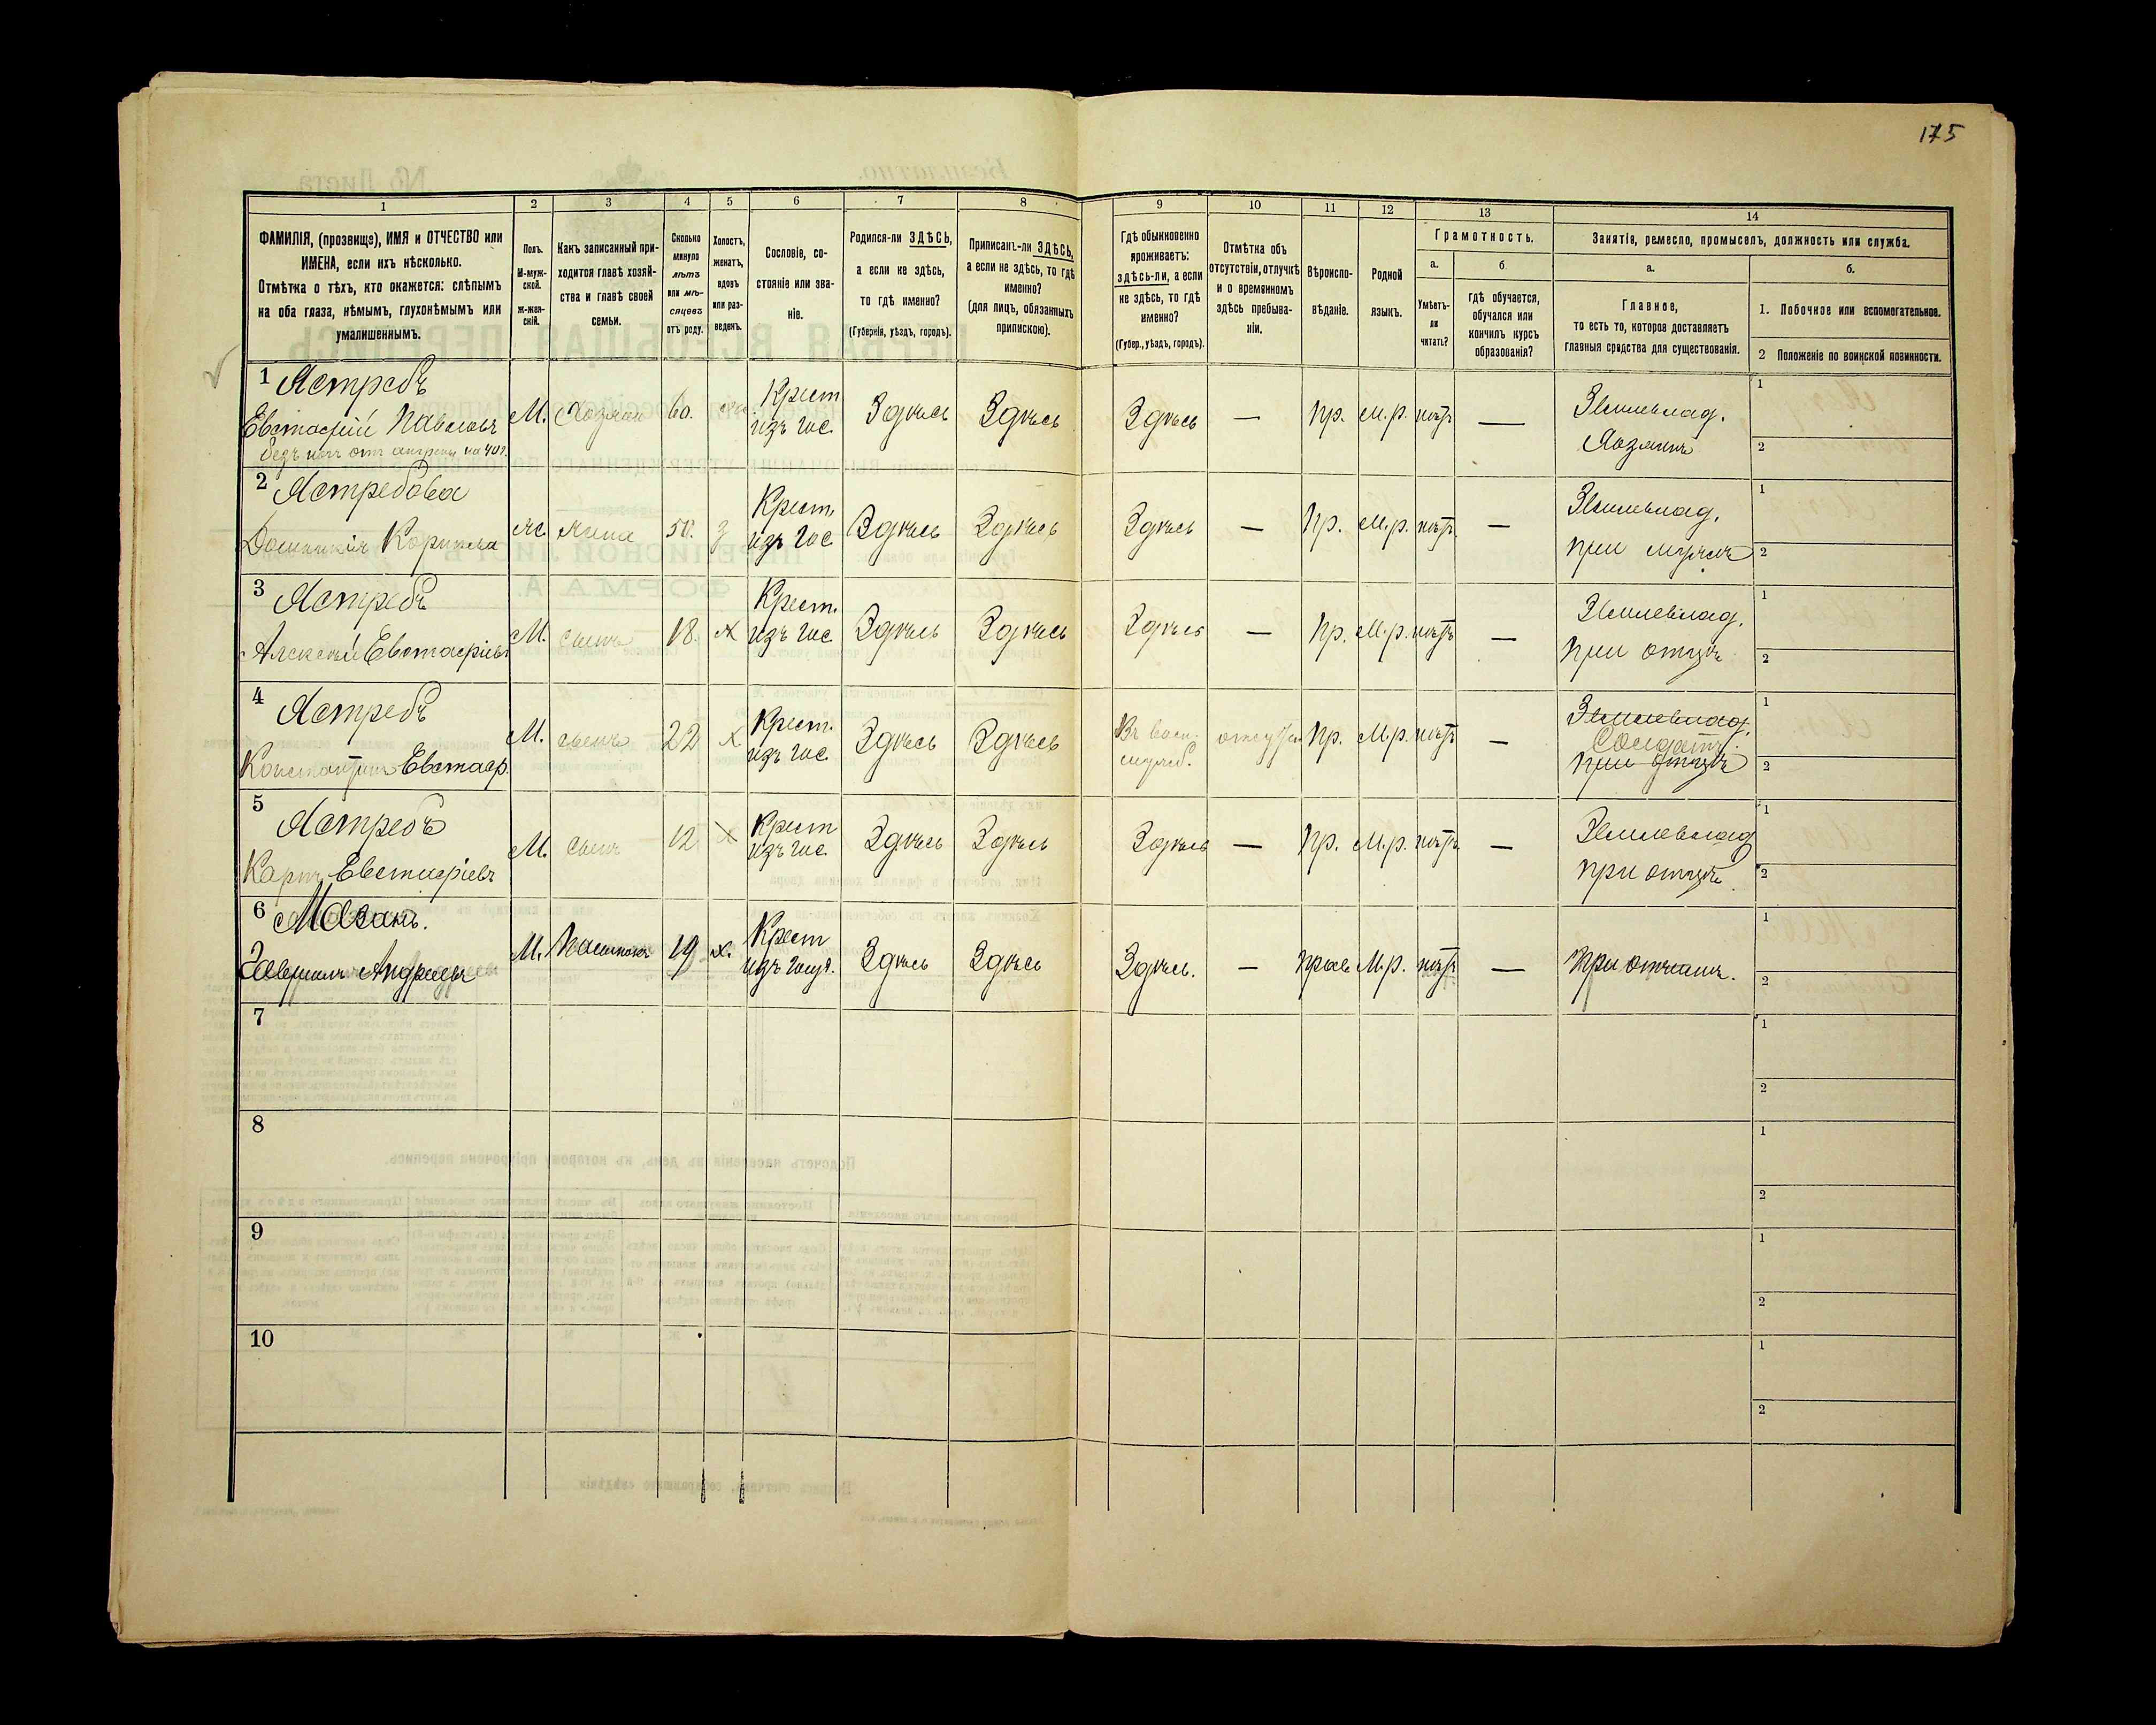 175
1 2 3 4 5 6 7 8 9 10 11 12 13 14
ФАМИЛІЯ, (прозвище), ИМЯ и ОТЧЕСТВО или
ИМЕНА, если ихъ нѣсколько.
Отмѣтка о тѣхъ, кто окажется: слѣпымъ
на оба глаза, нѣмымъ, глухонѣмымъ или
умалишеннымъ.
Полъ.
М-муж-
ской.
Ж-жен-
скій.
Какъ записанный при-
ходится главѣ хозяй-
ства и главѣ своей
семьи.
Сколько
минуло
лѣтъ
или мѣ-
сяцевъ
отъ роду.
Холостъ,
женатъ,
вдовъ
или раз-
веденъ.
Сословіе, со-
стояніе или зва-
ніе.
Родился-ли ЗДѢСЬ,
а если не здѣсь,
то гдѣ именно?
(Губернія, уѣздъ, городъ).
Приписанъ-ли ЗДѢСЬ,
а если не здѣсь, то гдѣ
именно?
(для лицъ, обязанныхъ
припискою).
Гдѣ обыкновенно
проживаетъ:
здѣсь-ли, а если
не здѣсь, то гдѣ
именно?
(Губер., уѣздъ, городъ).
Отмѣтка объ
отсутствіи, отлучкѣ
и о временномъ
здѣсь пребыва-
ніи.
Вѣроиспо-
вѣданіе.
Родной
языкъ.
Грамотность.
а.
Умѣетъ-
ли
читать?
б.
гдѣ обучается,
обучался или
кончилъ курсъ
образованія?
Занятіе, ремесло, промыселъ, должность или служба.
а.
Главное,
то есть то, которое доставляетъ
главныя средства для существованія.
б.
1. Побочное или вспомогательное.
2 Положеніе по воинской повинности.
1 Ястребъ
Евстафій Павловъ
М. Хозяин 60. Крест изъ гос. Здѣсь Здѣсь Здѣсь — пр. М.р. нѣтъ — Землевлад.
Хозяинъ
1
2
2 Ястребова
Корнива
ж. жина 50. з Крест. изъ гос Здѣсь Здѣсь Здѣсь — пр. М.р. нѣтъ — Землевлад.
при мужѣ
1
2
3 Ястребъ
Алексѣй Евстафіевъ
М. сынъ 18. х Крест. изъ гос Здѣсь Здѣсь Здѣсь — пр. М.р. нѣтъ — Землевлад.
при отцѣ
1
2
4 Ястребъ
Константинъ Евстаф.
М. сынъ 22 х Крест. изъ гос Здѣсь Здѣсь Въ воен. служб. пр. М.р. нѣтъ — Землевлад.
Солдатъ.
при отцѣ
1
2
5 Ястребъ
Карпъ Евстафіевъ
М. сынъ 12 х Крест изъ гос. Здѣсь Здѣсь Здѣсь — пр. М.р. нѣтъ — Землевлад
при отцѣ.
1
2
6 Мазанъ.
Андреевъ
М. Пасынокъ 19 х. Крест изъ госуд. Здѣсь Здѣсь Здѣсь. — прав М.р. нѣтъ — При отчимѣ.
1
2
7
1
2
8
1
2
9
1
2
10
1
2